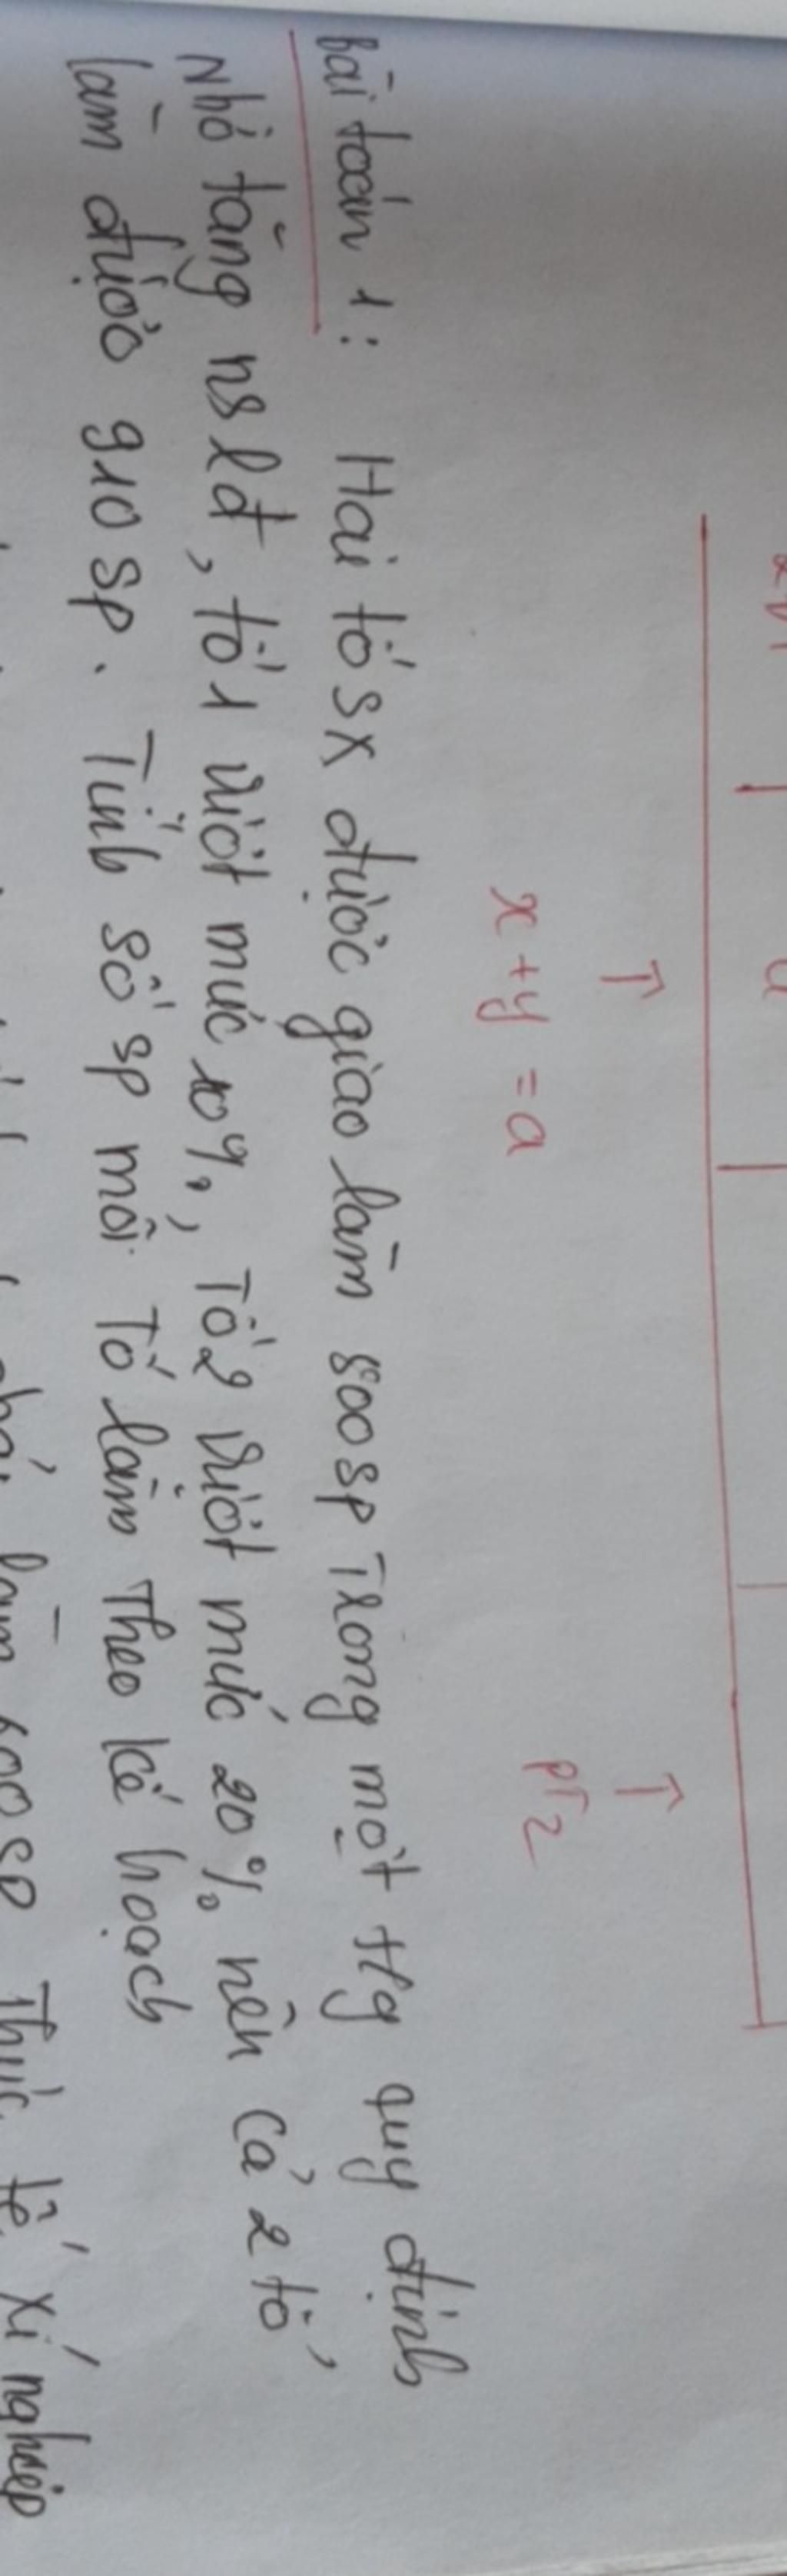 x + y = a
pT2
Bài toán 1: Hai tổ sx được giao làm 800 sp Trong một tlg quy định
Nhỏ tăng nslđ, tổ 1 vượt mức 10%, Tổ 2 vượt mức 20% nên cả 2 tổ
làm được 910 sp. Tính số sp mỗi Tổ làm Theo kế hoạch
làm 600 sp Thực tế xí nghiệp